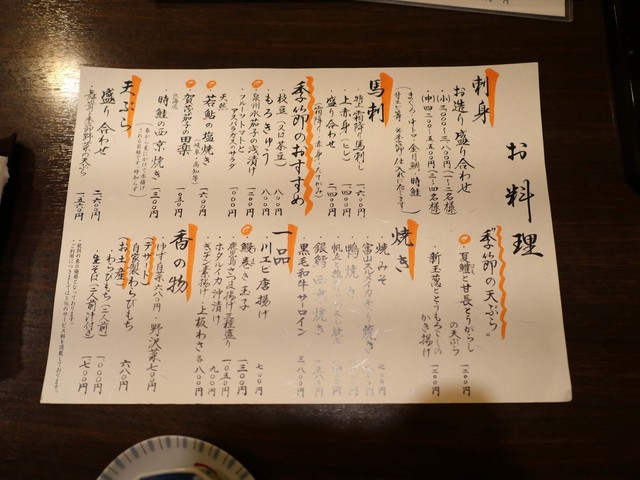 お料理
刺身
お造り盛り合わせ
(小)三〇〇〇〜三七〇〇円(一・二名様)
(中)四二〇〇〜五五〇〇円(三・四名様)
馬刺
特上霜降り馬刺し 一六〇〇円
上赤身(ヒレ) 一四〇〇円
盛り合わせ 二四〇〇円
(霜降り・赤身・たてがみ)
季節のおすすめ
枝豆(又は茶豆) 八〇〇円
もろきゅう 八〇〇円
泉州水茄子の浅漬け
フルーツトマトと
アスパラガスのサラダ
天然
若鮎の塩焼き 一六〇〇円
賀茂茄子の田楽
北海道
時鮭の西京焼き 一三〇〇円
天ぷら
盛り合わせ 二六〇〇円
季節の天ぷら
夏鱧と甘長とうがらし
の天ぷら 一二〇〇円
新玉葱ととうもろこしの
かき揚げ 一二〇〇円
焼き
焼みそ 七〇〇円
鴨焼き
銀鱈西京焼き
黒毛和牛サーロイン 三八〇〇円
一品
川エビ唐揚げ 七〇〇円
鰻巻き玉子 一三〇〇円
鹿児島さつま揚げ三種盛り 一〇五〇円
ホタルイカ沖漬け 九〇〇円
ぎんナン素揚げ・上板わさ各八〇〇円
香の物
ゆず白菜六八〇円・野沢菜七〇〇円
(デザート)
自家製わらびもち 六八〇円
(お土産)
わらびもち(二人前) 一〇〇〇円
生そば(二人前汁付き) 一七〇〇円